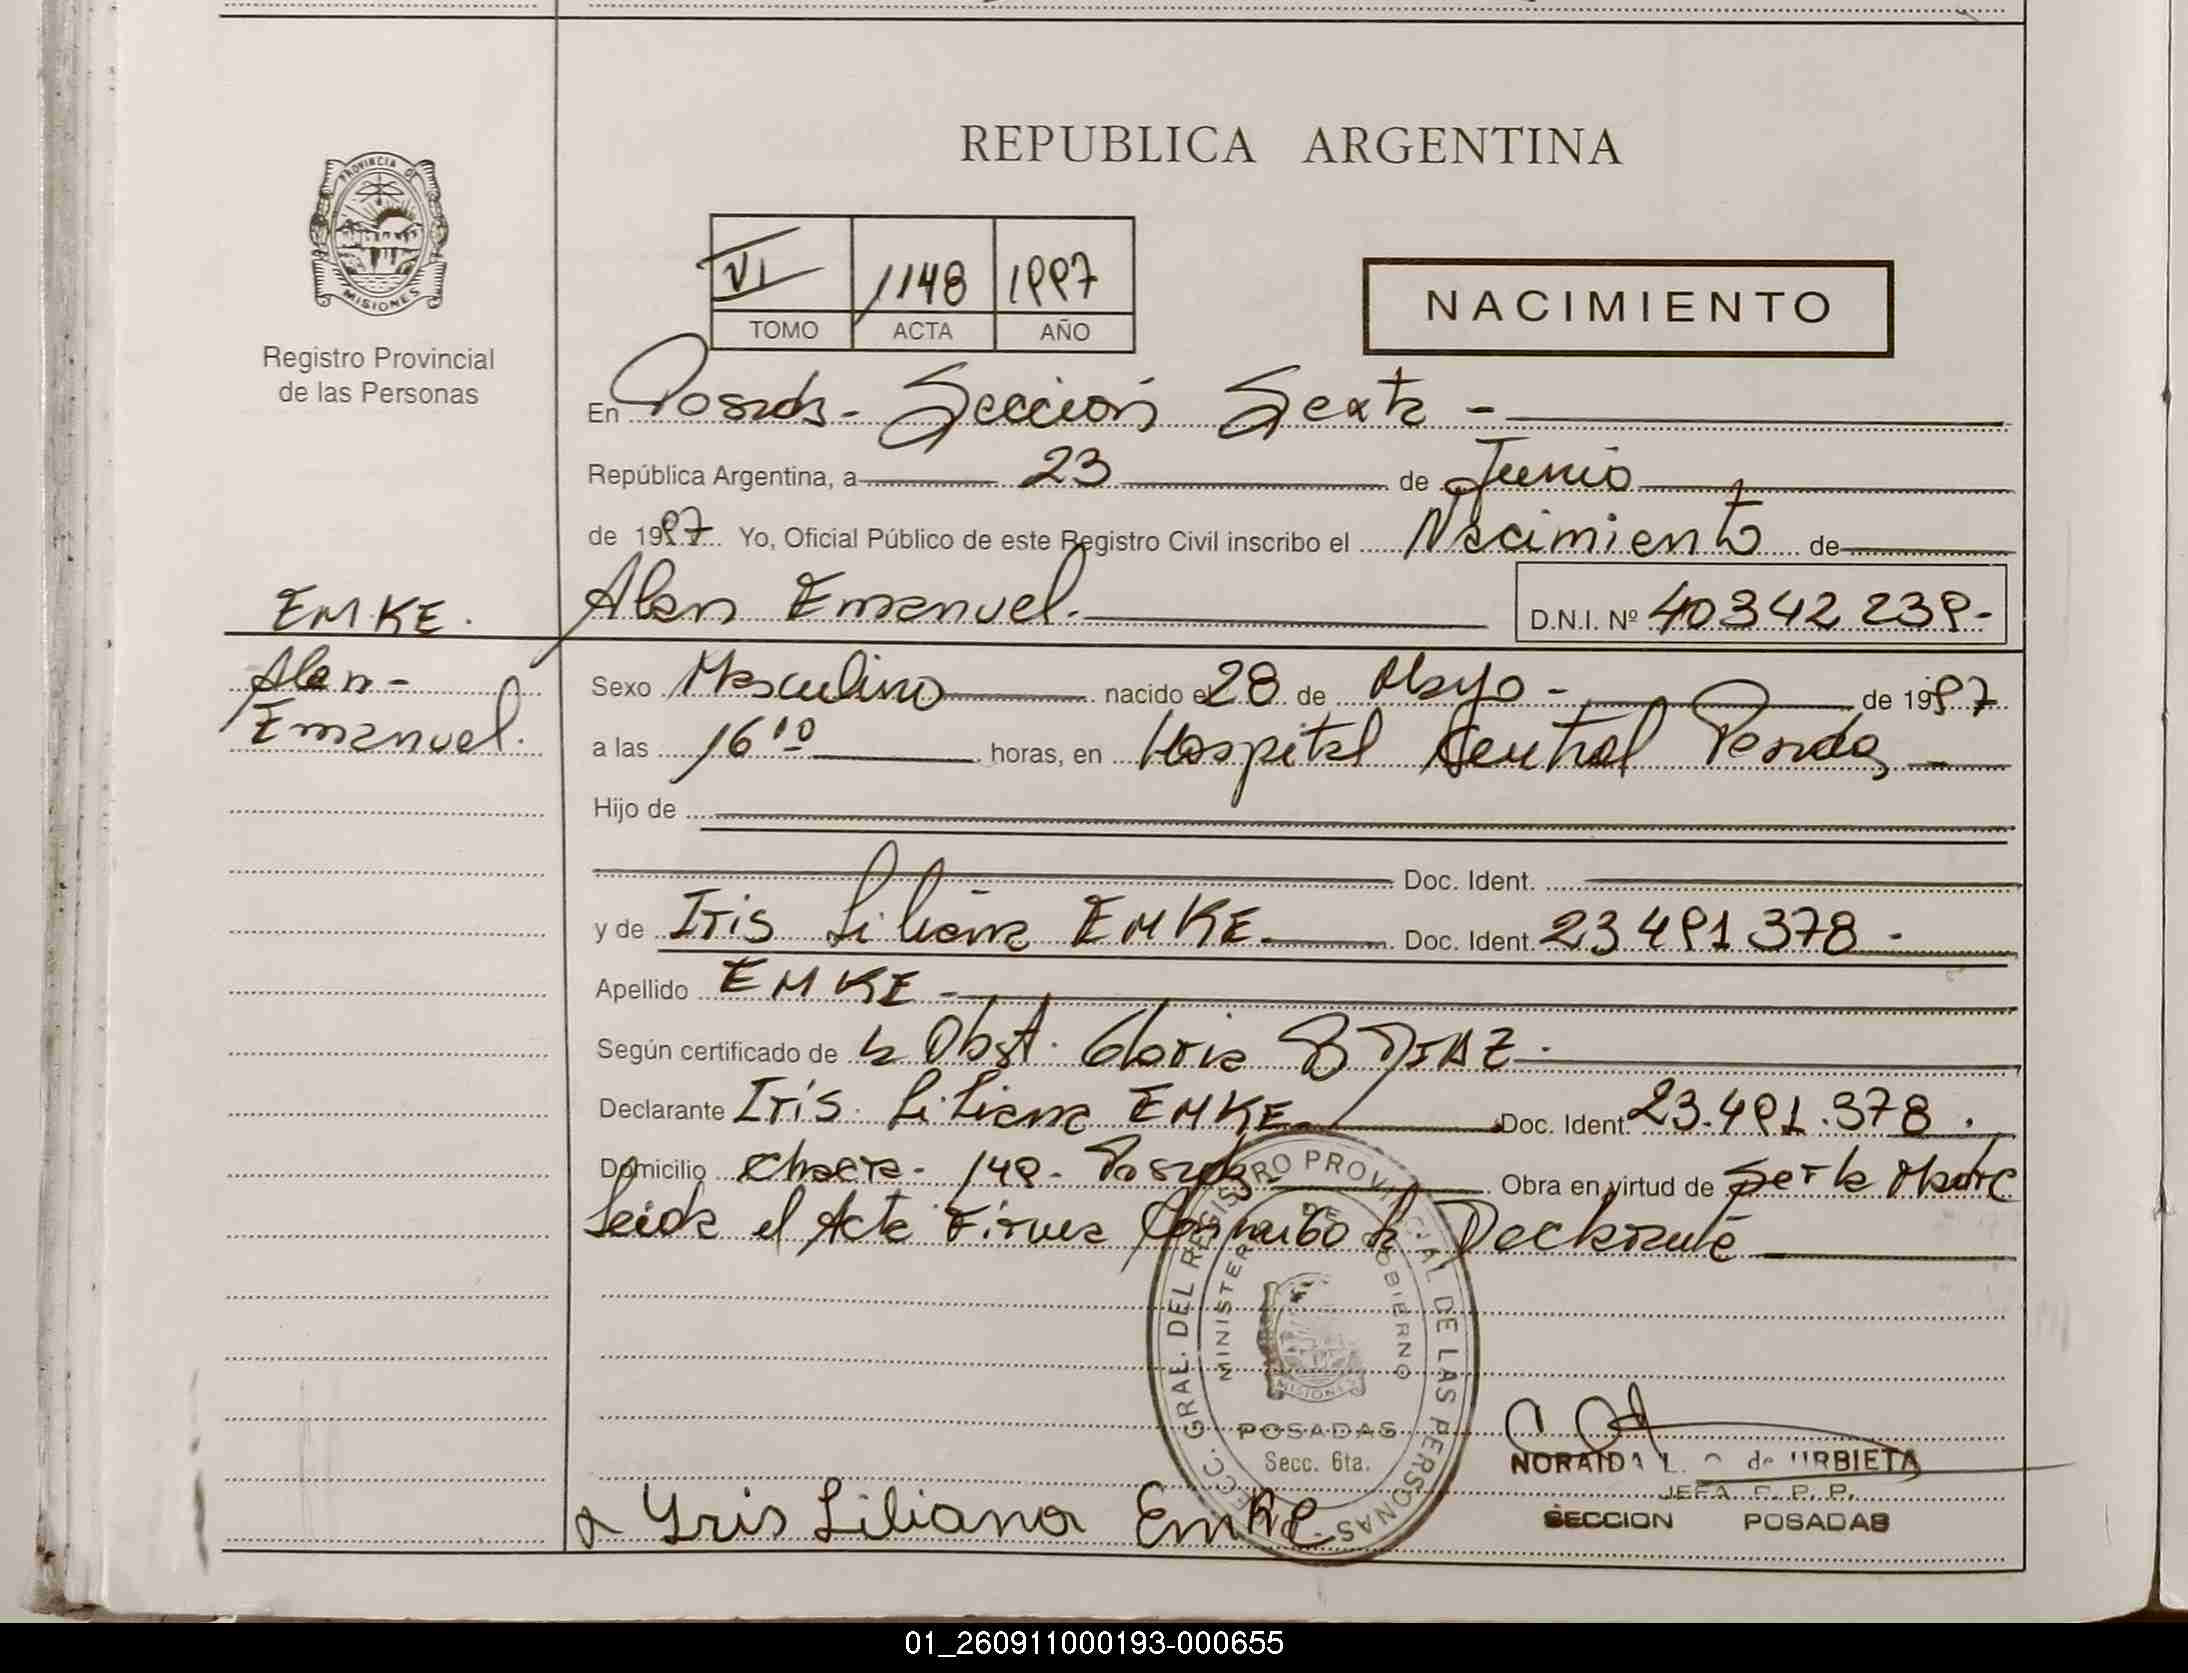 REPUBLICA ARGENTINA
PROVINCIA DE
MISIONES
Registro Provincial
de las Personas
VI 1148 1997
TOMO ACTA AÑO
NACIMIENTO
En Posadas - Sección Sexta -
República Argentina, a 23 de Junio
de 1997 Yo, Oficial Público de este Registro Civil inscribo el Nacimiento de
Alan Emanuel. D.N.I. Nº 40342239-
EMKE.
Alan-
Emanuel.
Sexo Masculino nacido el 28 de Mayo - de 1997
a las 16 10 horas, en Hospital Central Posadas
Hijo de
Doc. Ident.
y de Iris Liliana EMKE Doc. Ident. 23491378-
Apellido EMKE-
Según certificado de la Obst. Gloria B DIAZ-
Declarante Iris Liliana EMKE Doc. Ident. 23.491.378.
Domicilio Chacra- 149- Posadas Obra en virtud de ser la Madre
Leida el Acta Firma Conmigo la Declarante
SECC. GRAL. DEL REGISTRO PROVINCIAL DE LAS PERSONAS
MINISTERIO DE GOBIERNO
MISIONES
POSADAS
Secc. 6ta.
NORAIDA L. de URBIETA
JEFA R. P. P.
SECCION POSADAS
Yris Liliana Emke
01_260911000193-000655